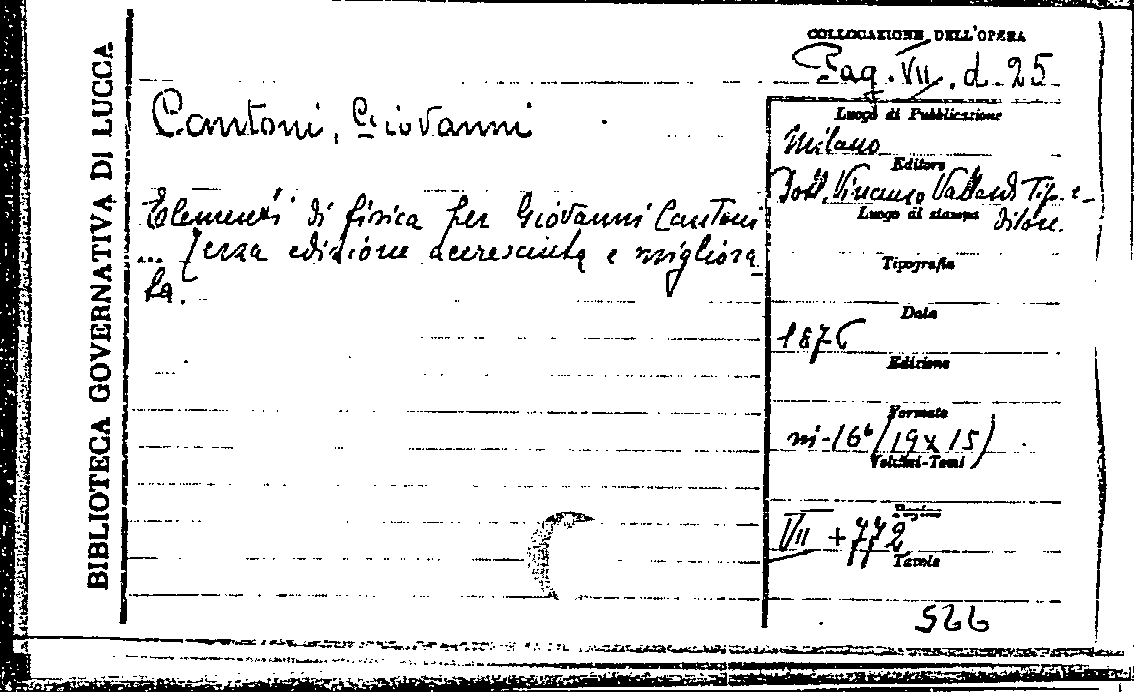 BIBLIOTECA GOVERNATIVA DI LUCCA
COLLOCAZIONE DELL'OPERA
Pag. VII. d. 25
Cantoni, Giovanni
Elementi di fisica per Giovanni Cantoni
... Terza edizione accresciuta e migliora
ta.
Luogo di Pubblicazione
Milano
Editore
Dott. Vincenzo Vallardi Tip. e-
ditore.
Luogo di stampa
Tipografia
Data
1876
Edizione
Formato
in-16° (19x15)
Volumi-Tomi
Pagine
VII + 772
Tavole
566